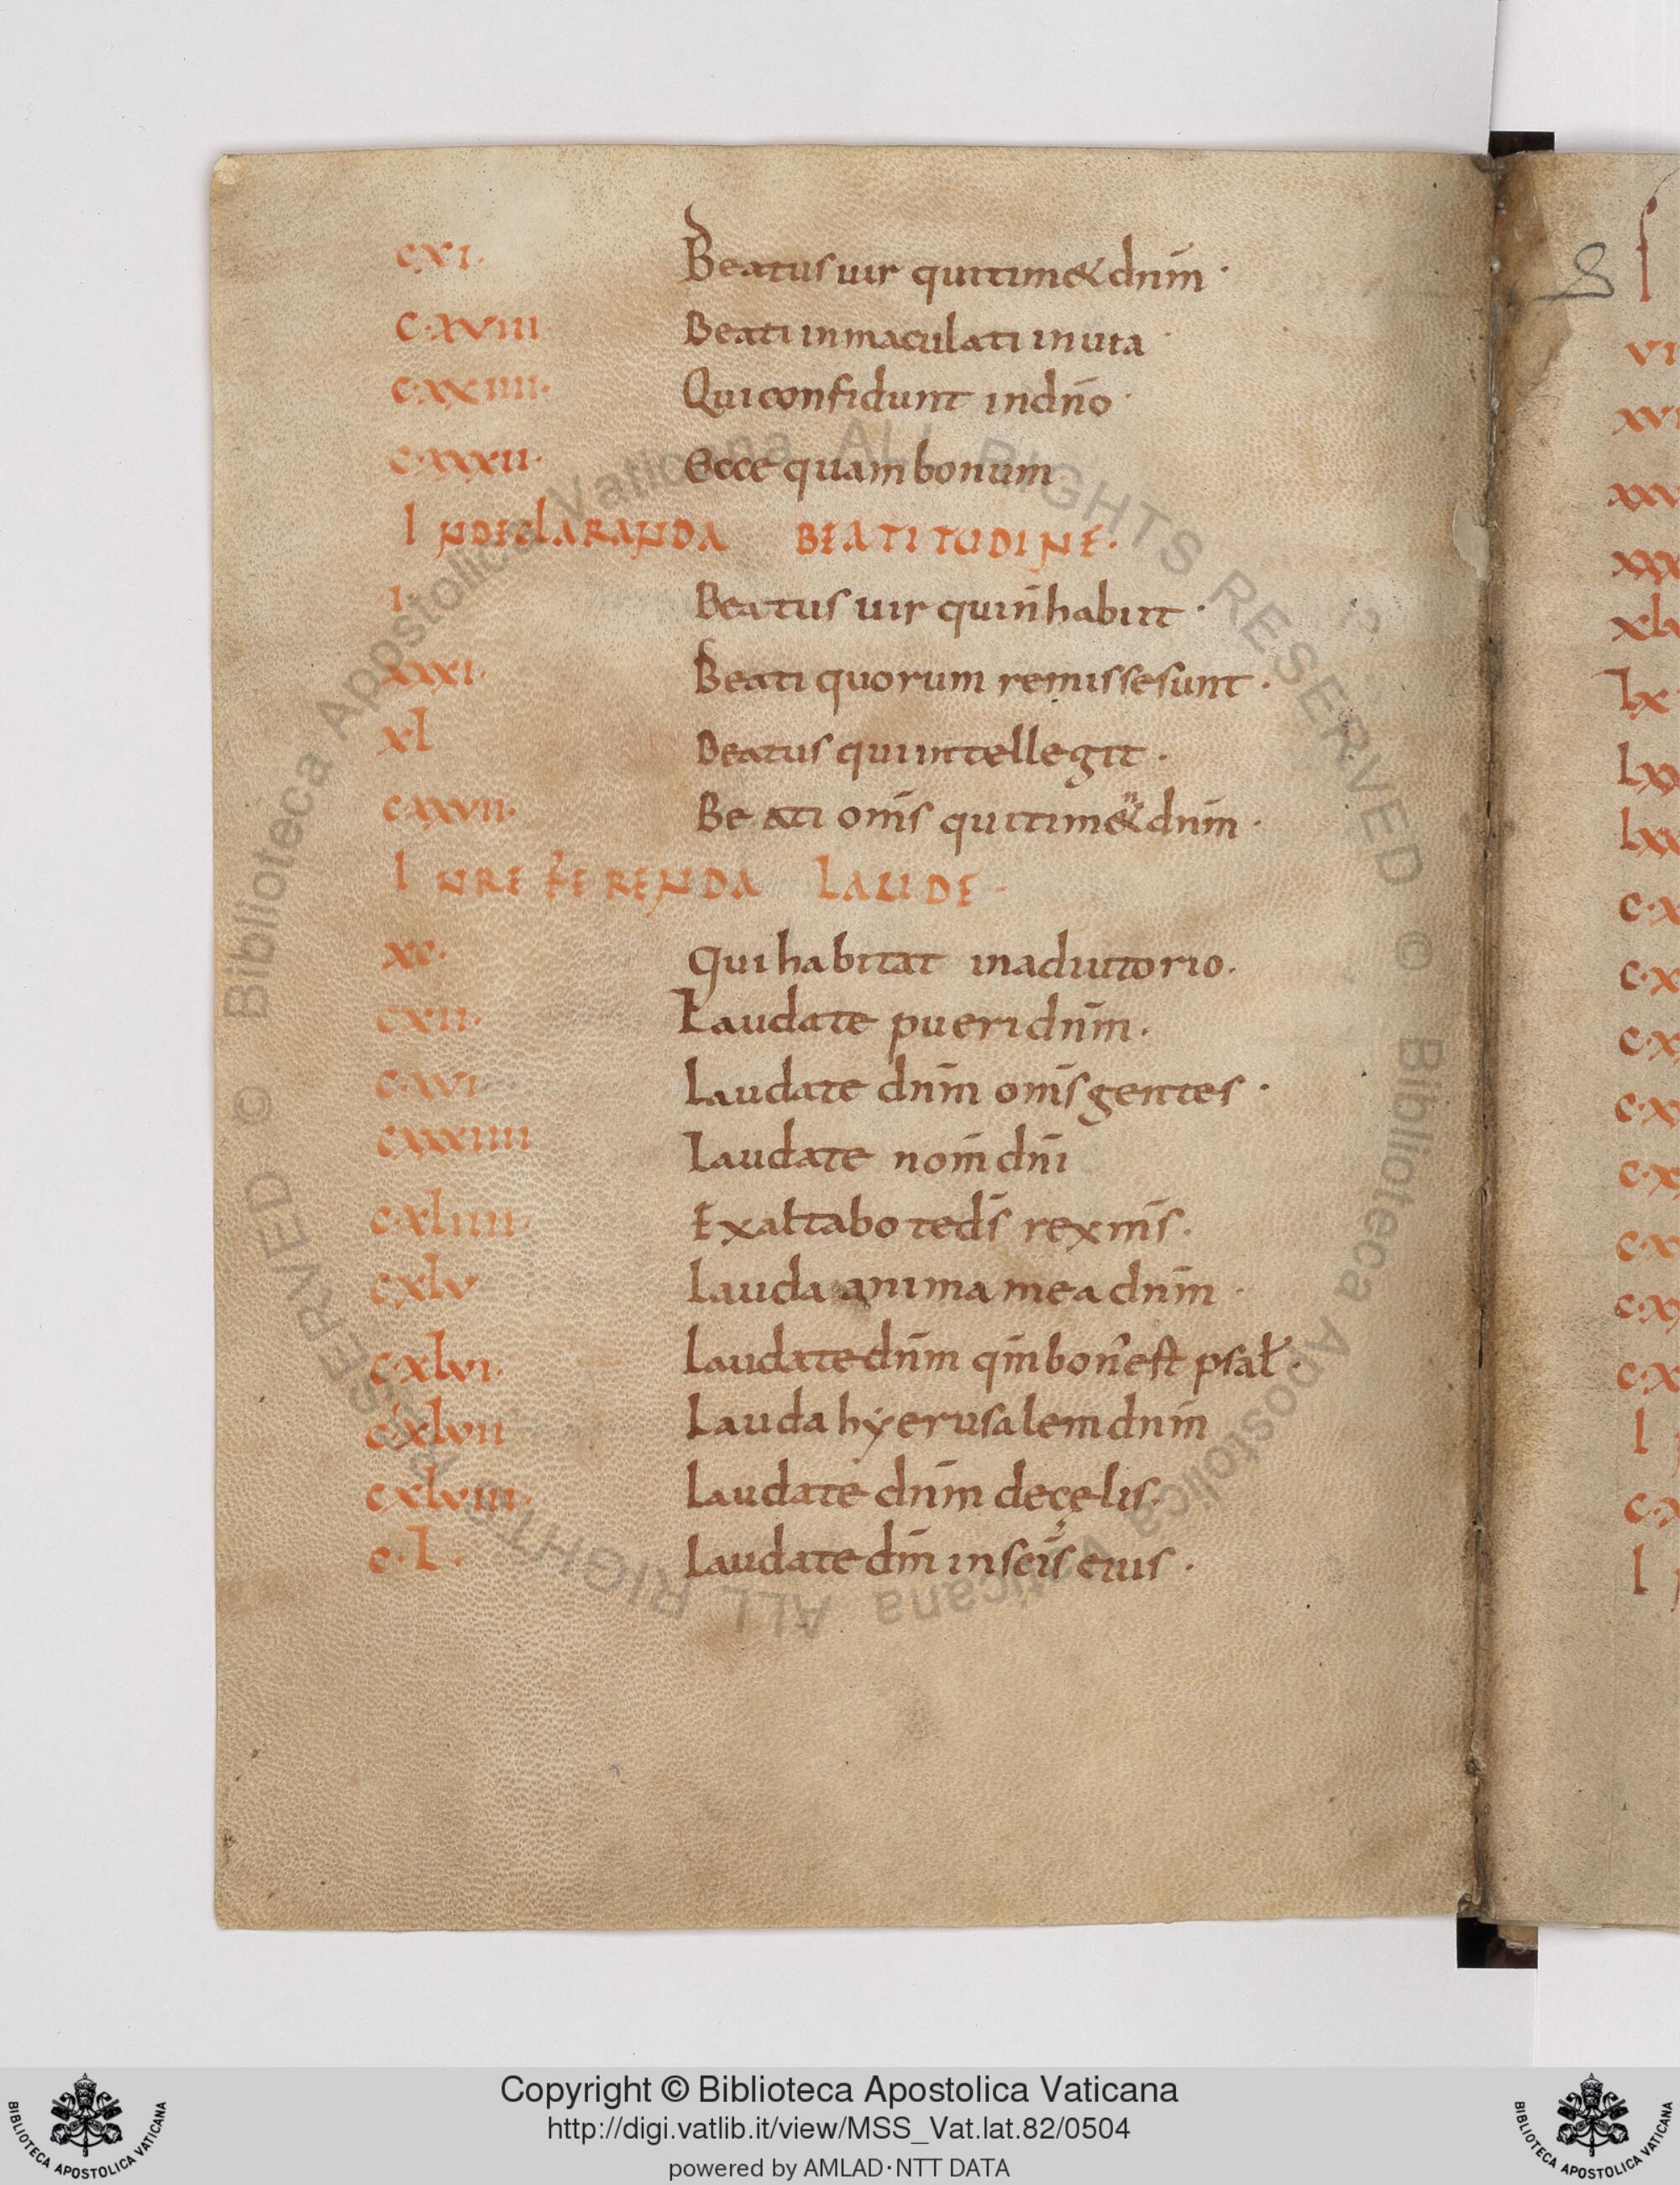 cxi. Beatus uir qui tim& dnm̄ ·
c·xviii Beati inmaculati in uia ·
c·xxiiii· Qui confidunt in dn̄o ·
c·xxxii· Ecce quam bonum
IN DEClARANDA BEATITUDINE·
i Beatus uir qui n̄ habiit ·
xxxi· Beati quorum remisse sunt ·
xl Beatus qui intellegit ·
cxxvii· Beati om̄s qui tim&̈ dnm̄ ·
IN REFERENDA LAUDE ·
xc· Qui habitat in adiutorio·
cxii· Laudate pueri dnm̄ ·
c·xvi· Laudate dnm̄ om̄s gentes ·
cxxxiiii Laudate nom̄ dni
c·xliiii· Exaltabo te ds̄ rex ms̄ ·
cxlv Lauda anima mea dnm̄ ·
c·xlvi· Laudate dnm̄ qm̄ bon' est psał·
c·xlvii Lauda hẏerusalem dnm̄
c·xlviii· Laudate dnm̄ de cęlis·
c·L· Laudate dm̄ in scīs eius ·
S
vi
xvi
xxx
xl
lx
lxx
lxx
c·x
c·x
c·x
c·x
c·x
c·x
c·x
c·x
l
c·x
l
© Biblioteca Apostolica Vaticana ALL RIGHTS RESERVED © Biblioteca Apostolica Vaticana ALL RIGHTS RESERVED
Copyright © Biblioteca Apostolica Vaticana
http://digi.vatlib.it/view/MSS_Vat.lat.82/0504
powered by AMLAD·NTT DATA
BIBLIOTECA APOSTOLICA VATICANA
BIBLIOTECA APOSTOLICA VATICANA